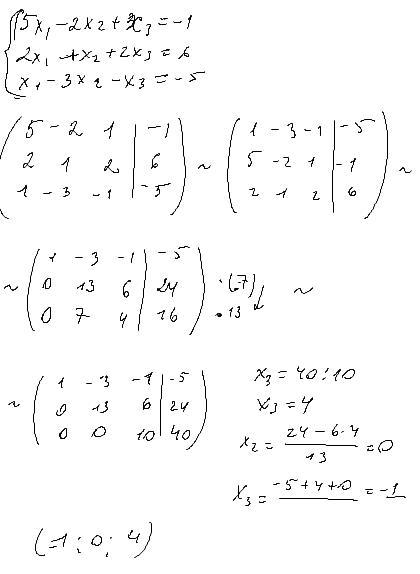 5x₁ - 2x₂ + x₃ = -1
2x₁ + x₂ + 2x₃ = 6
x₁ - 3x₂ - x₃ = -5
( 5 -2 1 | -1 ) ~ ( 1 -3 -1 | -5 ) ~
( 2 1 2 | 6 ) ( 5 -2 1 | -1 )
( 1 -3 -1 | -5 ) ( 2 1 2 | 6 )
~ ( 1 -3 -1 | -5 )
( 0 13 6 | 24 ) ·(-7) ~
( 0 7 4 | 16 ) ·13 ↓
~ ( 1 -3 -1 | -5 )
( 0 13 6 | 24 )
( 0 0 10 | 40 )
x₃ = 40 : 10
x₃ = 4
x₂ = (24 - 6·4)/13 = 0
x₃ = -5 + 4 + 0 = -1
(-1; 0; 4)